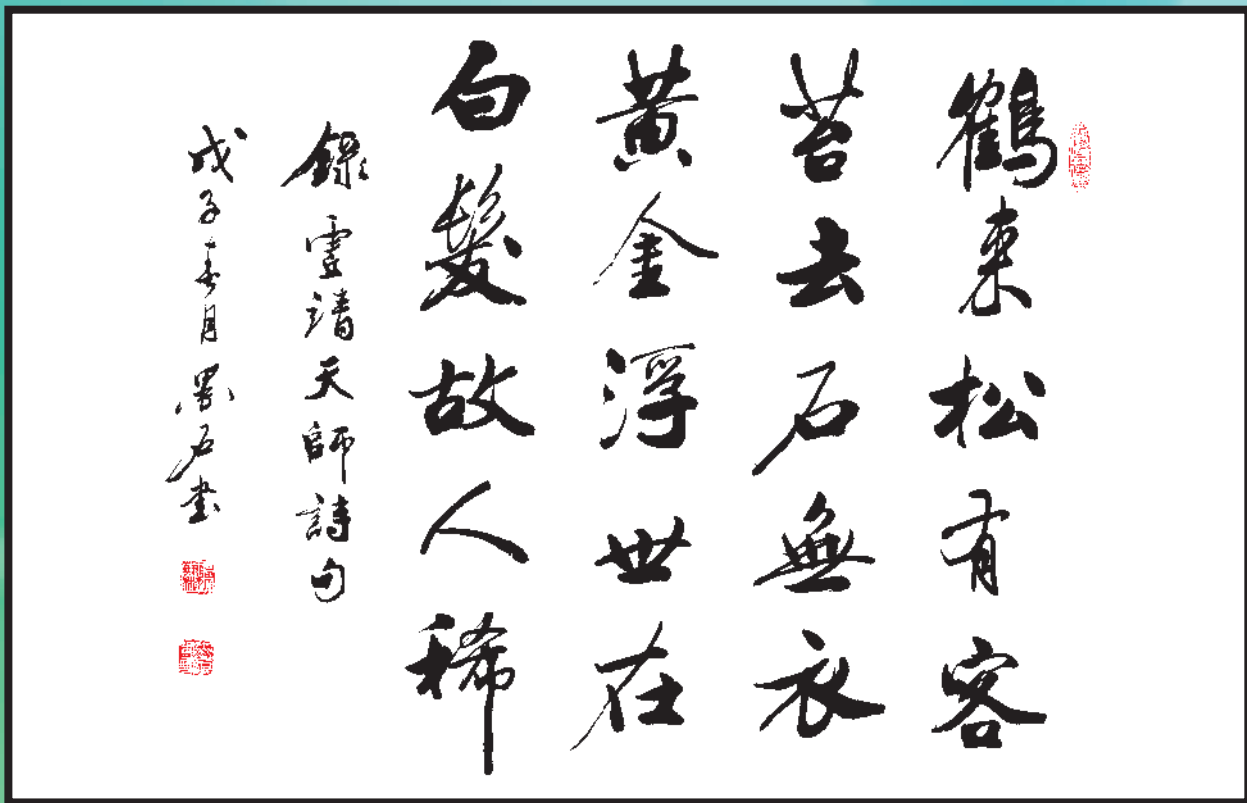 鶴來松有客
苔去石無衣
黃金浮世在
白髮故人稀
錄虛靖天師詩句
戊子春月墨石書